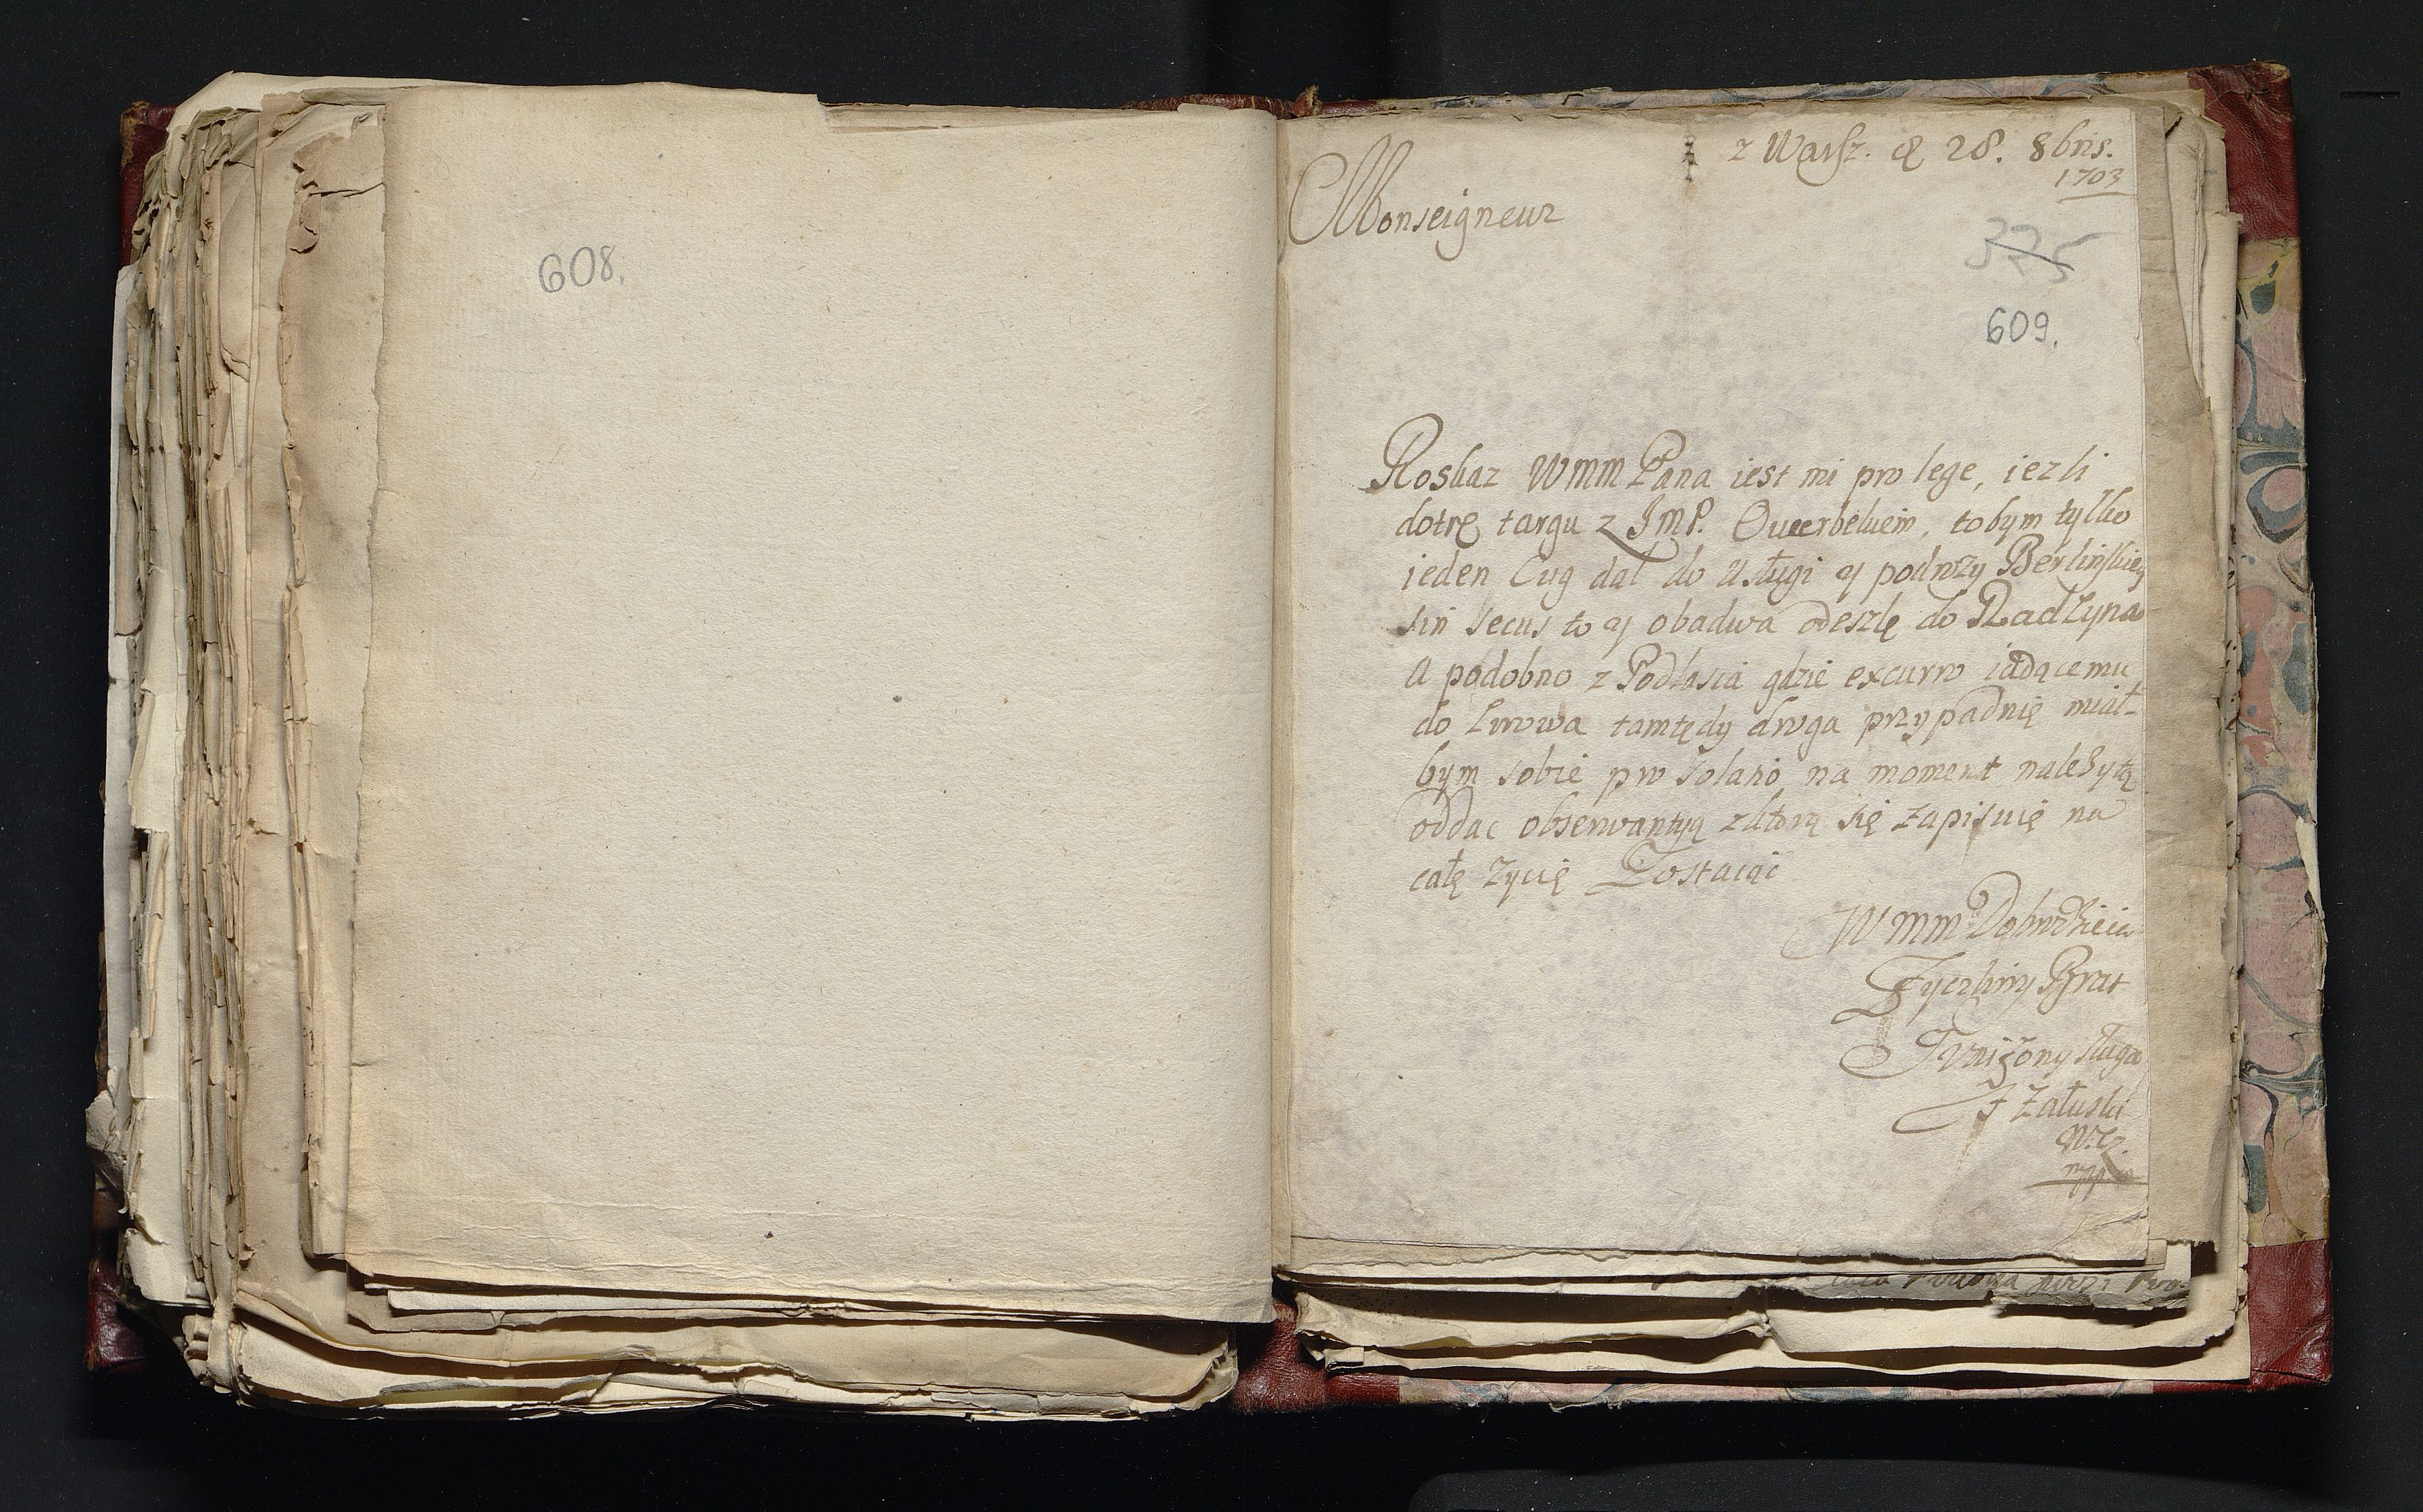 608.
z Warsz. d 28. 8bris.
1703
Monseigneur
375
609.
Roskaz WMM Pana iest mi pro lege, iezli
dotrę targu z JMP. to bym tylko
ieden Cug dał do Usługi y podrozy Berlinskiey
sin secus to y obadwa odeszlę do Radzyna
A podobno z Podlasia gdzie excurro iadącemu
do Lwowa tamtędy droga przypadnię miał-
bym sobie pro solatio na moment należytą
oddac obserwantyą zktorą się zapisuię na
całę Zycię Zostaiąc
WMM Dobrodzieia
Zyczliwy Brat
Y Vniżony sługa
J Załuski
mpp